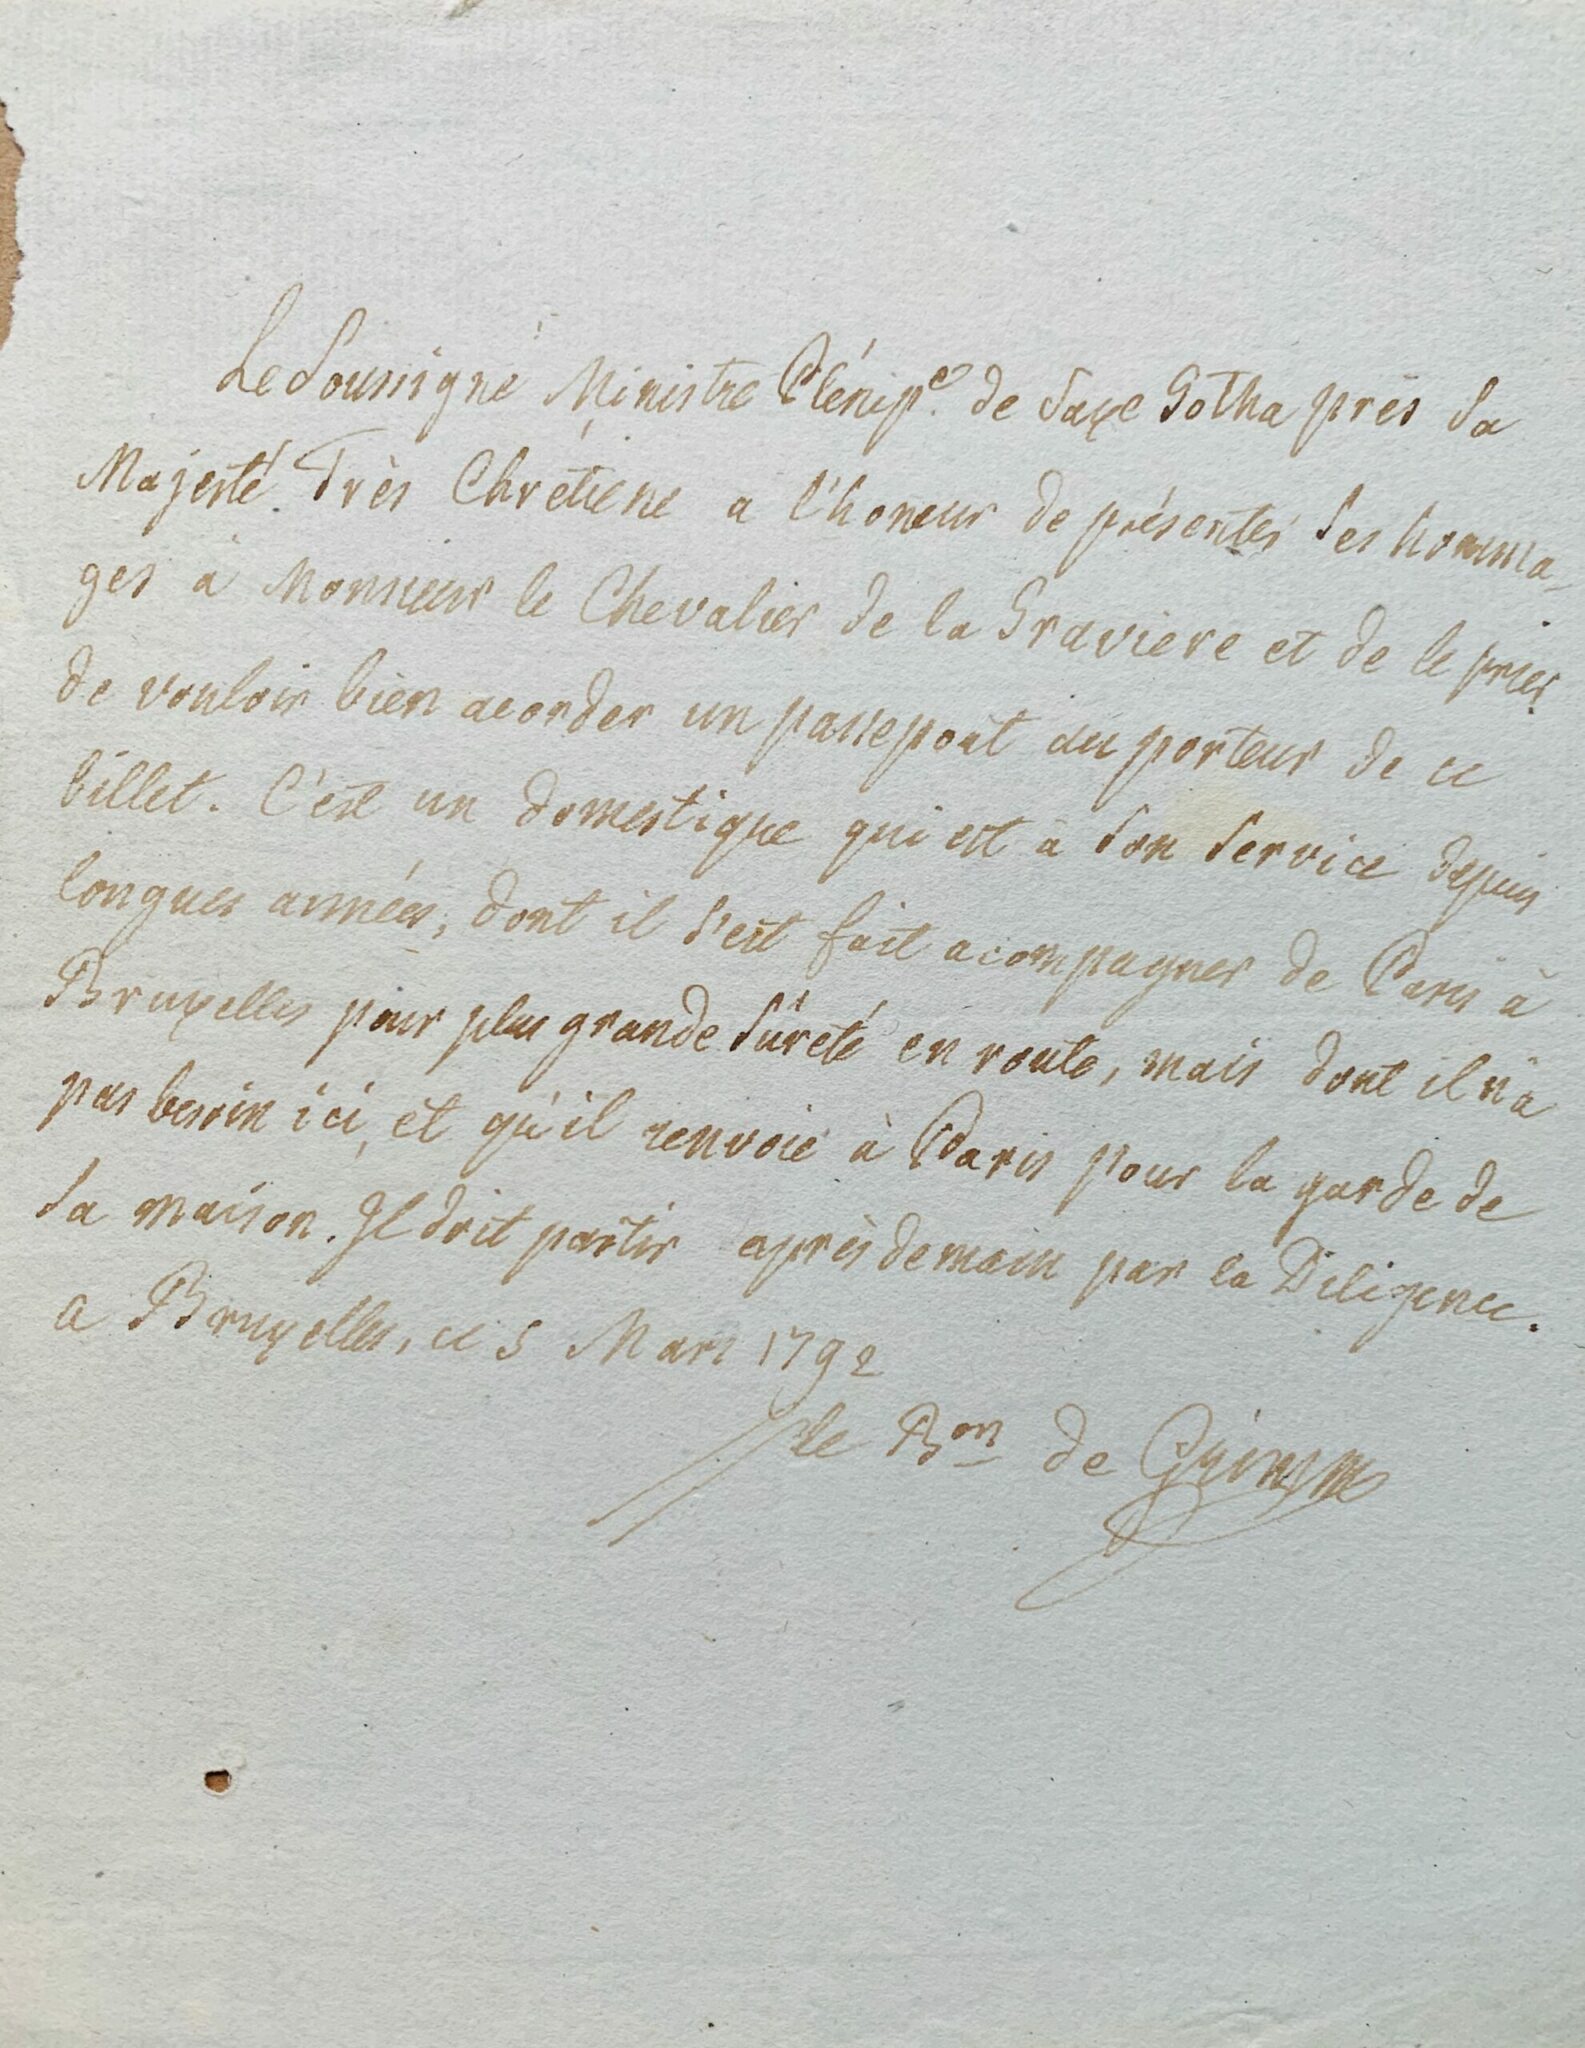 Le Soussigné Ministre Plénip.e de Saxe Gotha près Sa
Majesté Très Chrétiene a l'honeur de présenter ses homma-
ges à Monsieur le Chevalier de la Graviere et de le prier
de vouloir bien acorder un passeport au porteur de ce
billet. C'est un domestique qui est à son service depuis
longues années, dont il s'est fait acompagner de Paris à
Bruxelles pour plus grande sûreté en route, mais dont il n'a
pas besoin ici, et qu'il renvoie à Paris pour la garde de
sa maison. Il doit partir après demain par la Diligence.
a Bruxelles, ce 5 Mars 1792
le Bon de Grimm